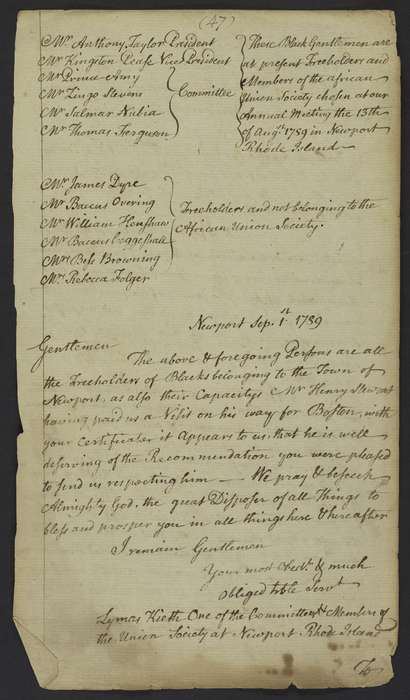 (47)
Mr. Anthony Taylor President
Mr Kingston Pease Vice President
Mr Prince Amy
Mr Zingo Stevens
Mr Salmar Nubia
Mr Thomas Ferguson
Committee
These Black Gentlemen are
at present Freeholders and
Members of the African
Union Society chosen at our
Annual Meeting the 13th
of Augst 1789 in Newport
Rhode Island
Mr. James Dyre
Mr Baccus Overing
Mr William Henshaw
Mr Baccus Coggeshall
Mrs Bele Browning
Mrs Rebecca Folger
Freeholders and not belonging to the
African Union Society.
Newport Sep. 1st 1789
Gentlemen
The above & foregoing Persons are all
the Freeholders of Blacks belonging to the Town of
Newport, as also their Capacitys Mr Henry Stewart
having paid us a Visit on his way for Boston, with
your Certificates it Appears to us, that he is well
deserving of the Recommendation you were pleased
to send us respecting him — We pray & beseech
Almighty God, the great Disposer of all Things to
bless and prosper you in all things here & hereafter
I remain Gentlemen
Your most Obedt & much
obliged Hble Servt
Lymas Kieth One of the Committee & Members of
the Union Society at Newport Rhode Island
To